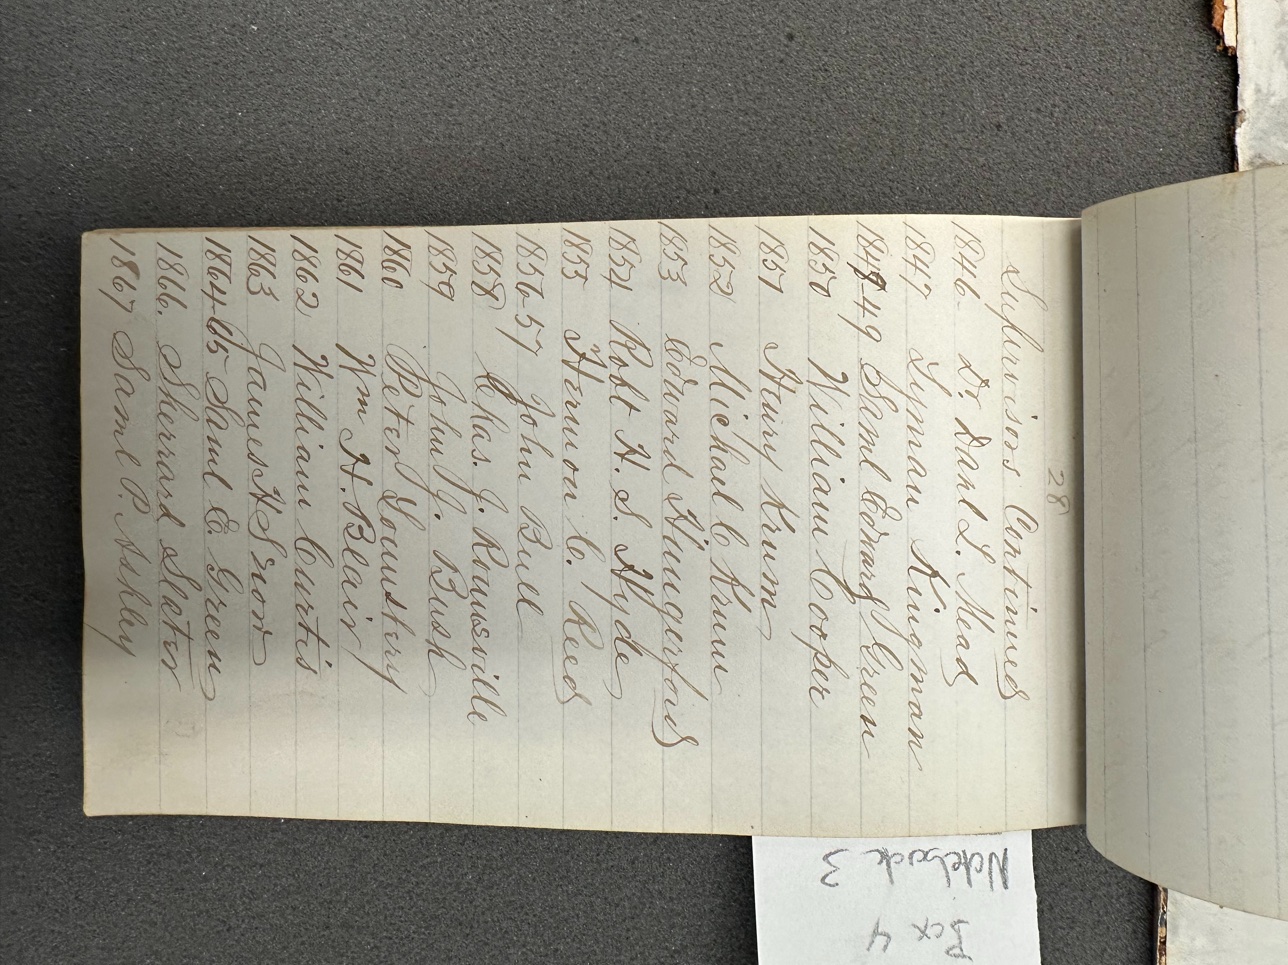 28
Supervisors Continued
1846- Dr. Danl L. Mead
1847 Lyman Kingman
1848-49 Saml Edward Green
1850 William Cooper
1851 Henry Krum
1852 Michael C. Krum
1853 Edward Hungerford
1854 Robt H. S. Hyde
1855 Hermon C. Reed
1856-57 John Bull
1858 Chas. J. Rounsville
1859 John J. Bush
1860 Peter Lounsbery
1861 Wm H. Blair
1862 William Curtis
1863 James H Snow
1864-65 Saml E. Green
1866. Sherrard Slater
1867 Saml P. Ashley
Box 4
Notebook 3